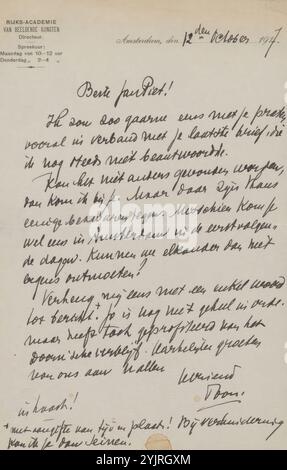 RIJKS-ACADEMIE
VAN BEELDENDE KUNSTEN
Directeur.
Spreekuur:
Maandag van 10-12 uur
Donderdag „ 2-4 „
Amsterdam, den 12 den October 19
Beste Jan Piet!
Ik zou zoo gaarne eens met je praten
vooral in verband met je laatste brief, die
ik nog steeds niet beantwoordde.
Kan het niet anders gevonden worden,
dan kom ik bij je. Maar daar zijn thans
eenige bezwaren tegen. Misschien kom je
wel eens in Amsterdam in de eerstvolgen-
de dagen. Kunnen we elkander dan niet
ergens ontmoeten?
Verheug mij eens met een enkel woord
tot bericht. Jo is nog niet geheel in orde.
maar heeft toch geprofiteerd van het
verblijf. Hartelijke groeten
van ons aan u allen
vriend
Toon.
in haast!
van tijd in plaats! Bij verhindering
kan ik je dan seinen.
alamy
Image ID: 2YJRGXM
www.alamy.com